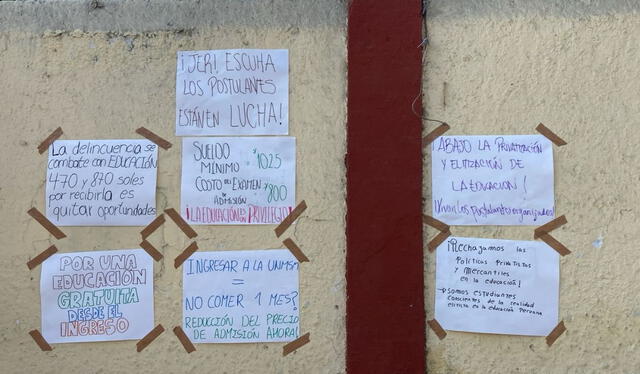 ¡JERÍ ESCUHA
LOS POSTULANTES
ESTÁN EN LUCHA!
La delincuencia se
combate con EDUCACIÓN
470 y 870 soles
por recibirla es
quitar oportunidades
SUELDO
MÍNIMO $1025
COSTO DEL EXAMEN
DE
ADMISIÓN $800
¡LA EDUCACIÓN UN PRIVILEGIO!
POR UNA
EDUCACIÓN
GRATUITA
DESDE EL
INGRESO
INGRESAR A LA UNMSM
=
NO COMER 1 MES?
REDUCCIÓN DEL PRECIO
DE ADMISIÓN AHORA!
¡ABAJO LA PRIVATIZACIÓN
Y ELITIZACIÓN DE
LA EDUCACIÓN!
¡Vivan los postulantes organizados!
¡Rechazamos las
Políticas Privatistas
y Mercantiles
en la educación!
→ Somos estudiantes
conscientes de la realidad
elitista en la educación Peruana